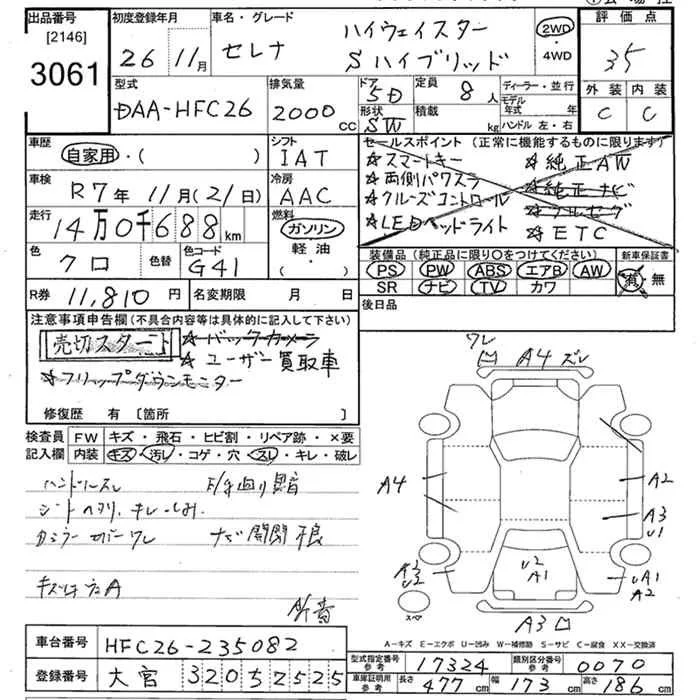 出品番号
[2146]
3061
初度登録年月
26 11月
車名・グレード
セレナ
ハイウェイスター
Sハイブリッド
2WD
・
4WD
評価点
35
外装 内装
C C
型式
DAA-HFC26
排気量
2000cc
ドア
5D
形状
SW
定員
8人
積載
kg
ディーラー・並行
モデル年式 年
ハンドル 左・右
車歴
自家用・( )
シフト
IAT
車検
R7年 11月(21日)
冷房
AAC
走行
14万0千688km
燃料
ガソリン
軽油
・
色
クロ
色替
色コード
G41
R券 11,810円
名変期限 月 日
セールスポイント(正常に機能するものに限ります)
☆スマートキー
☆両側パワスラ
☆クルーズコントロール
☆LEDヘッドライト
☆純正AW
☆純正ナビ
☆フルセグ
☆ETC
装備品(純正品に限り○をつけてください)
PS PW ABS エアB AW
SR ナビ TV カワ
新車保証書
有 無
後日品
注意事項申告欄(不具合内容等は具体的に記入して下さい)
売切スタート
☆バックカメラ
☆ユーザー買取車
☆フリップダウンモニター
修復歴 有 [箇所 ]
検査員記入欄
FW キズ・飛石・ヒビ割・リペア跡・×要
内装 キズ・汚レ・コゲ・穴・スレ・キレ・破レ
ハンドルスレ
シートヘタリ、キレ、しみ
ナビ開閉不良
ワレ
A4 ズレ
A4
A2
A3
U1
U2
A1
UA1
A2
A3
スペア
A-キズ E-エクボ U-凹み W-補修跡 S-サビ C-腐食 XX-交換済
車台番号
HFC26-235082
登録番号
大宮 320 ち 2525
型式指定番号
参考
17324
類別区分番号
参考
0070
車庫証明用
参考
長さ 477cm
幅 173cm
高さ 186cm